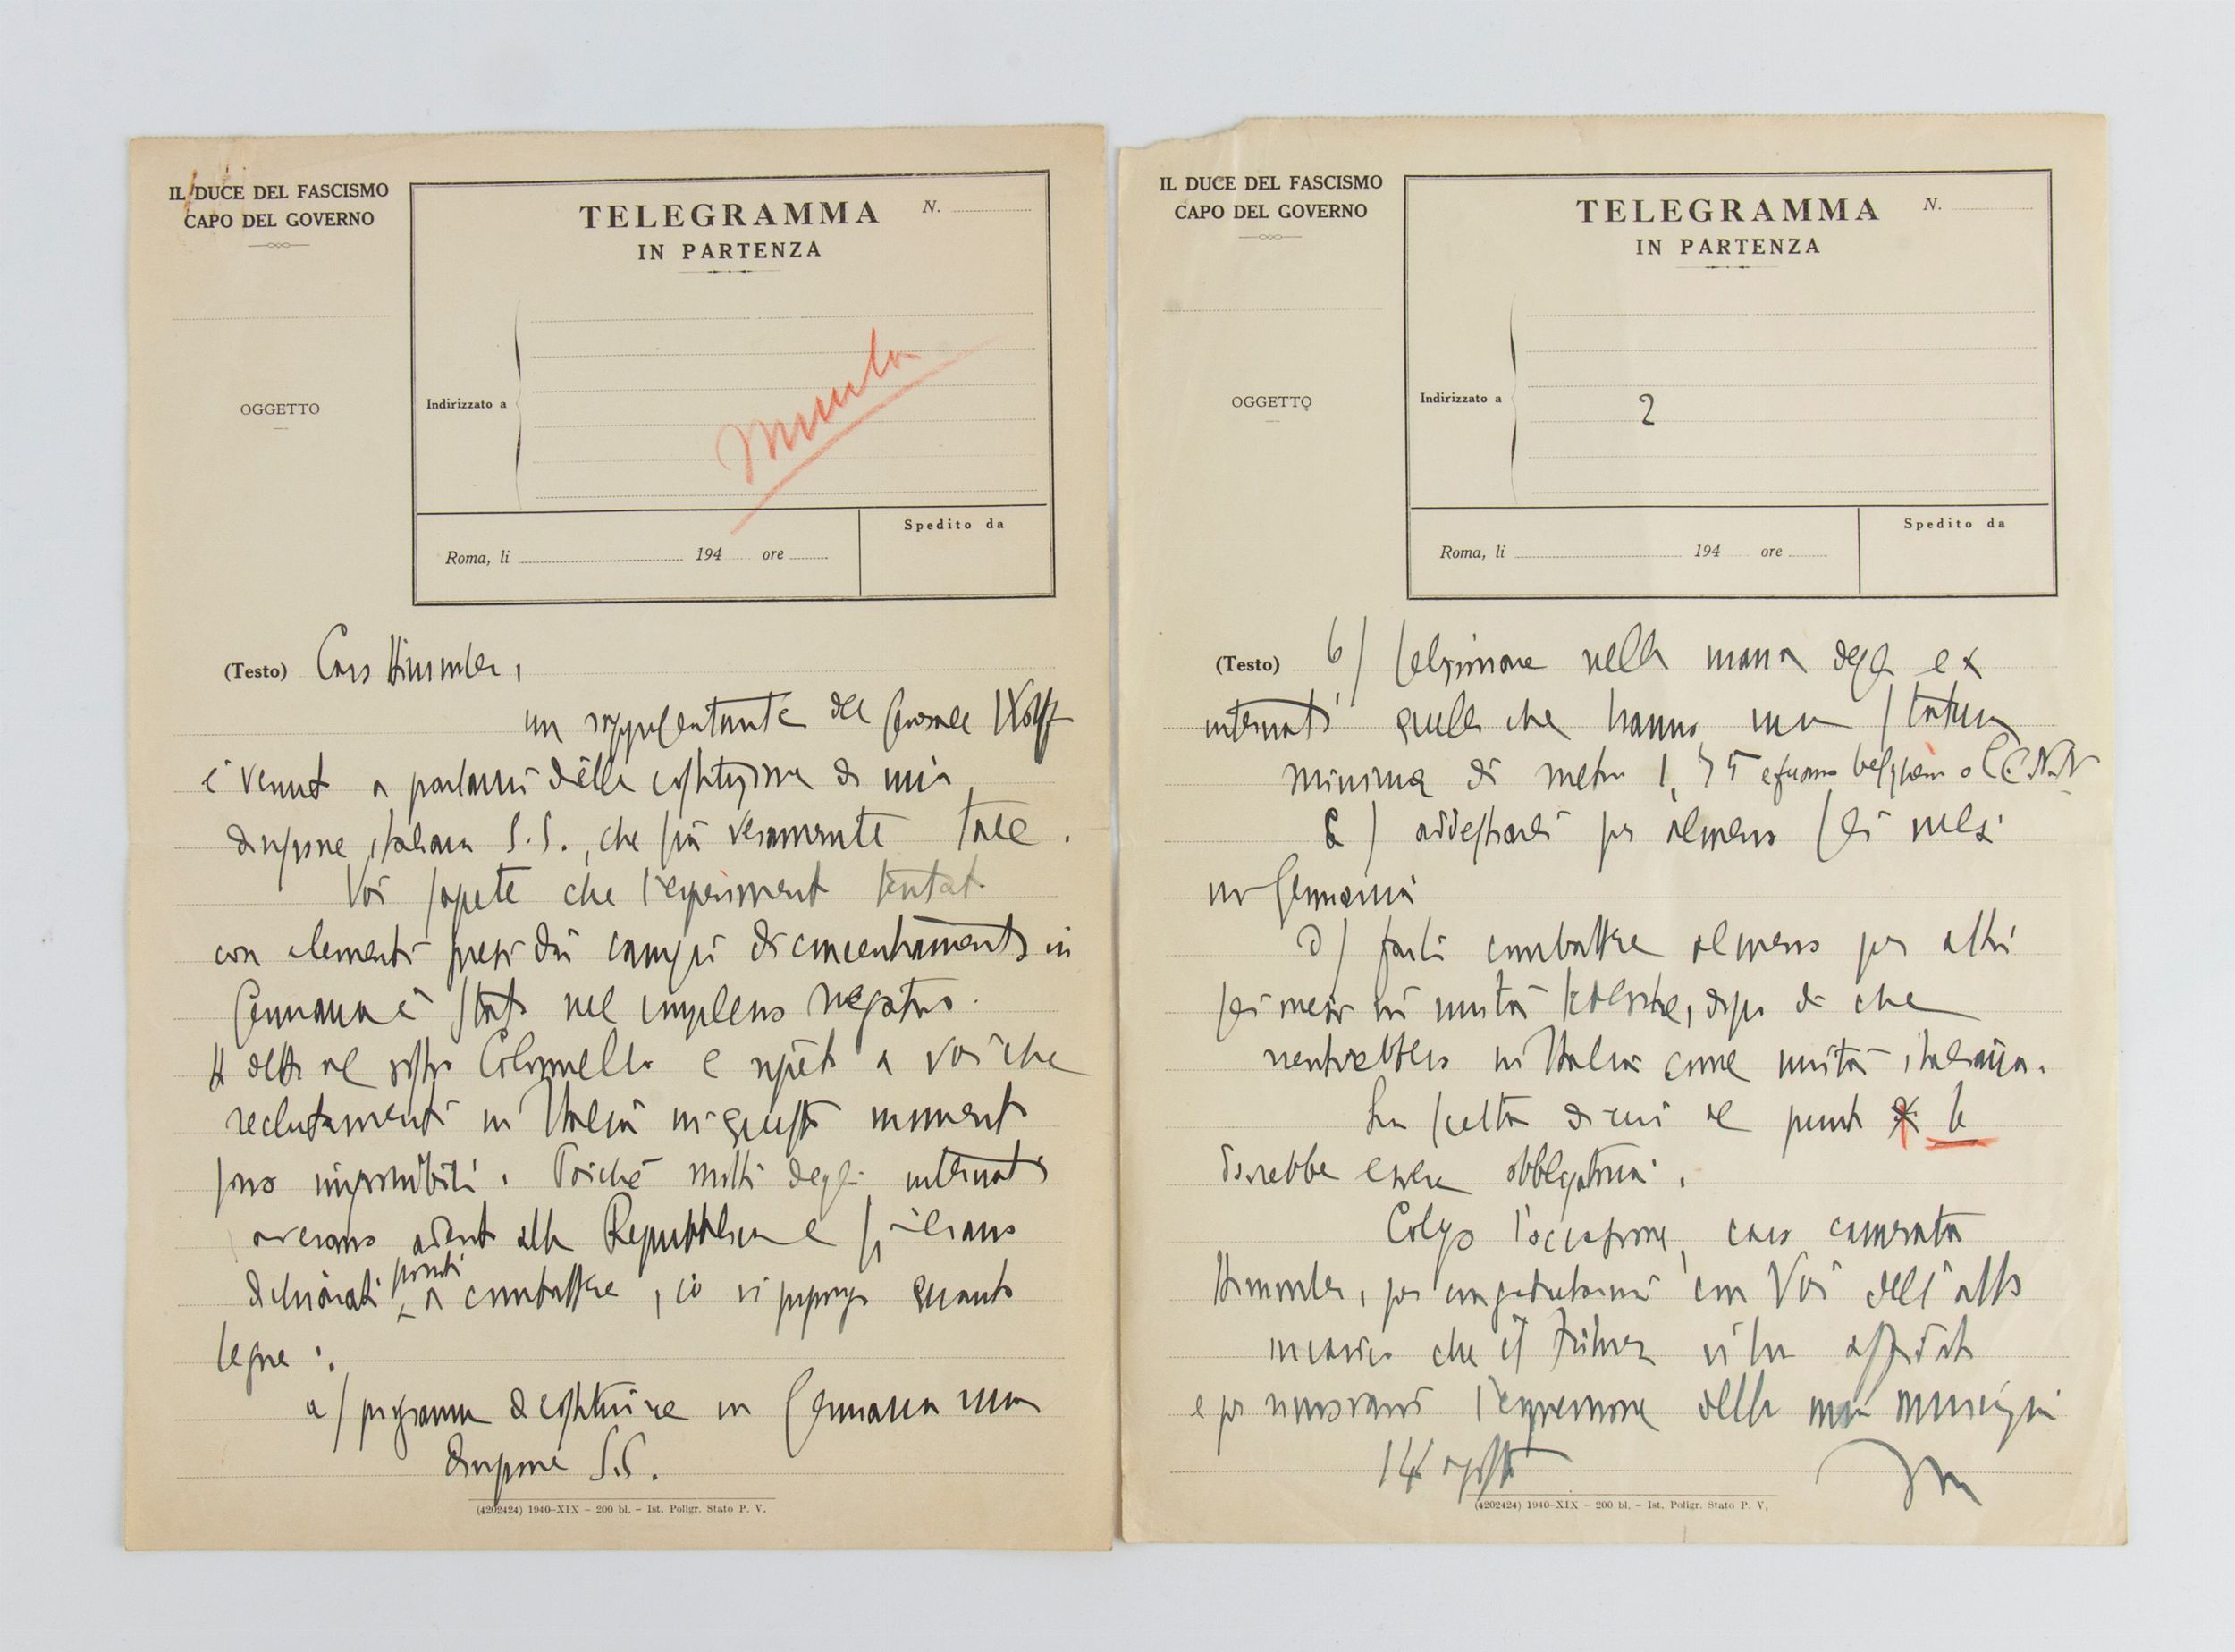 IL DUCE DEL FASCISMO
CAPO DEL GOVERNO
TELEGRAMMA N.
IN PARTENZA
OGGETTO
Indirizzato a
Minuta
Roma, li 194 ore
Spedito da
(Testo) Caro Himmler,
un rappresentante del Generale Wolff
è venuto a parlarmi della costituzione di una
divisione italiana S.S., che sia veramente tale.
Voi sapete che l'esperimento tentato
con elementi presi dai campi di concentramento in
Germania è stato nel complesso negativo.
Ho detto al vostro Colonnello e ripeto a voi che
reclutamenti in Italia in questo momento
sono impossibili. Poiché molti degli internati
avevano aderito alla Repubblica e si erano
dichiarati pronti a combattere, io vi propongo quanto
segue:
a) programma di costituire in Germania una
divisione S.S.
(4202424) 1940-XIX - 200 bl. - Ist. Poligr. Stato P. V.
IL DUCE DEL FASCISMO
CAPO DEL GOVERNO
TELEGRAMMA N.
IN PARTENZA
OGGETTO
Indirizzato a
2
Roma, li 194 ore
Spedito da
(Testo) b) selezionare nella massa degli ex
internati quelli che hanno una statura
minima di metri 1,75 e furono bersaglieri o CC.NN
c) addestrarli per almeno sei mesi
in Germania
d) farli combattere almeno per altri
sei mesi in unità tedesche, dopo di che
rientrerebbero in Italia come unità italiana.
La scelta di cui al punto b
dovrebbe essere obbligatoria.
Colgo l'occasione, caro camerata
Himmler, per congratularmi con Voi dell'alto
incarico che il Führer vi ha affidato
e per rinnovarvi l'espressione della mia amicizia
14 agosto
(4202424) 1940-XIX - 200 bl. - Ist. Poligr. Stato P. V.